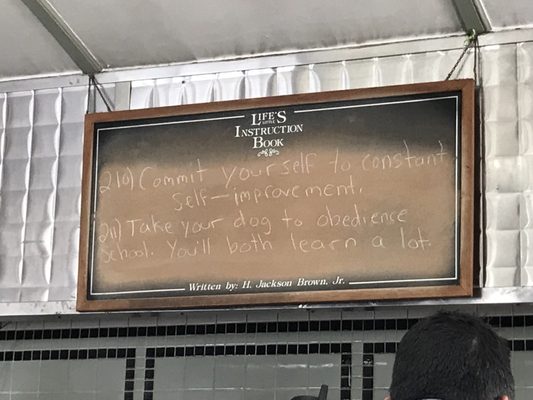 LIFE'S
LITTLE
INSTRUCTION
BOOK
210) Commit yourself to constant
self-improvement.
211) Take your dog to obedience
school. You'll both learn a lot.
Written by: H. Jackson Brown, Jr.